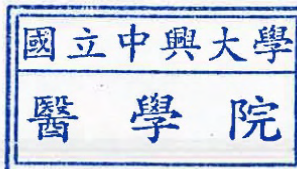 國立中興大學
醫學院